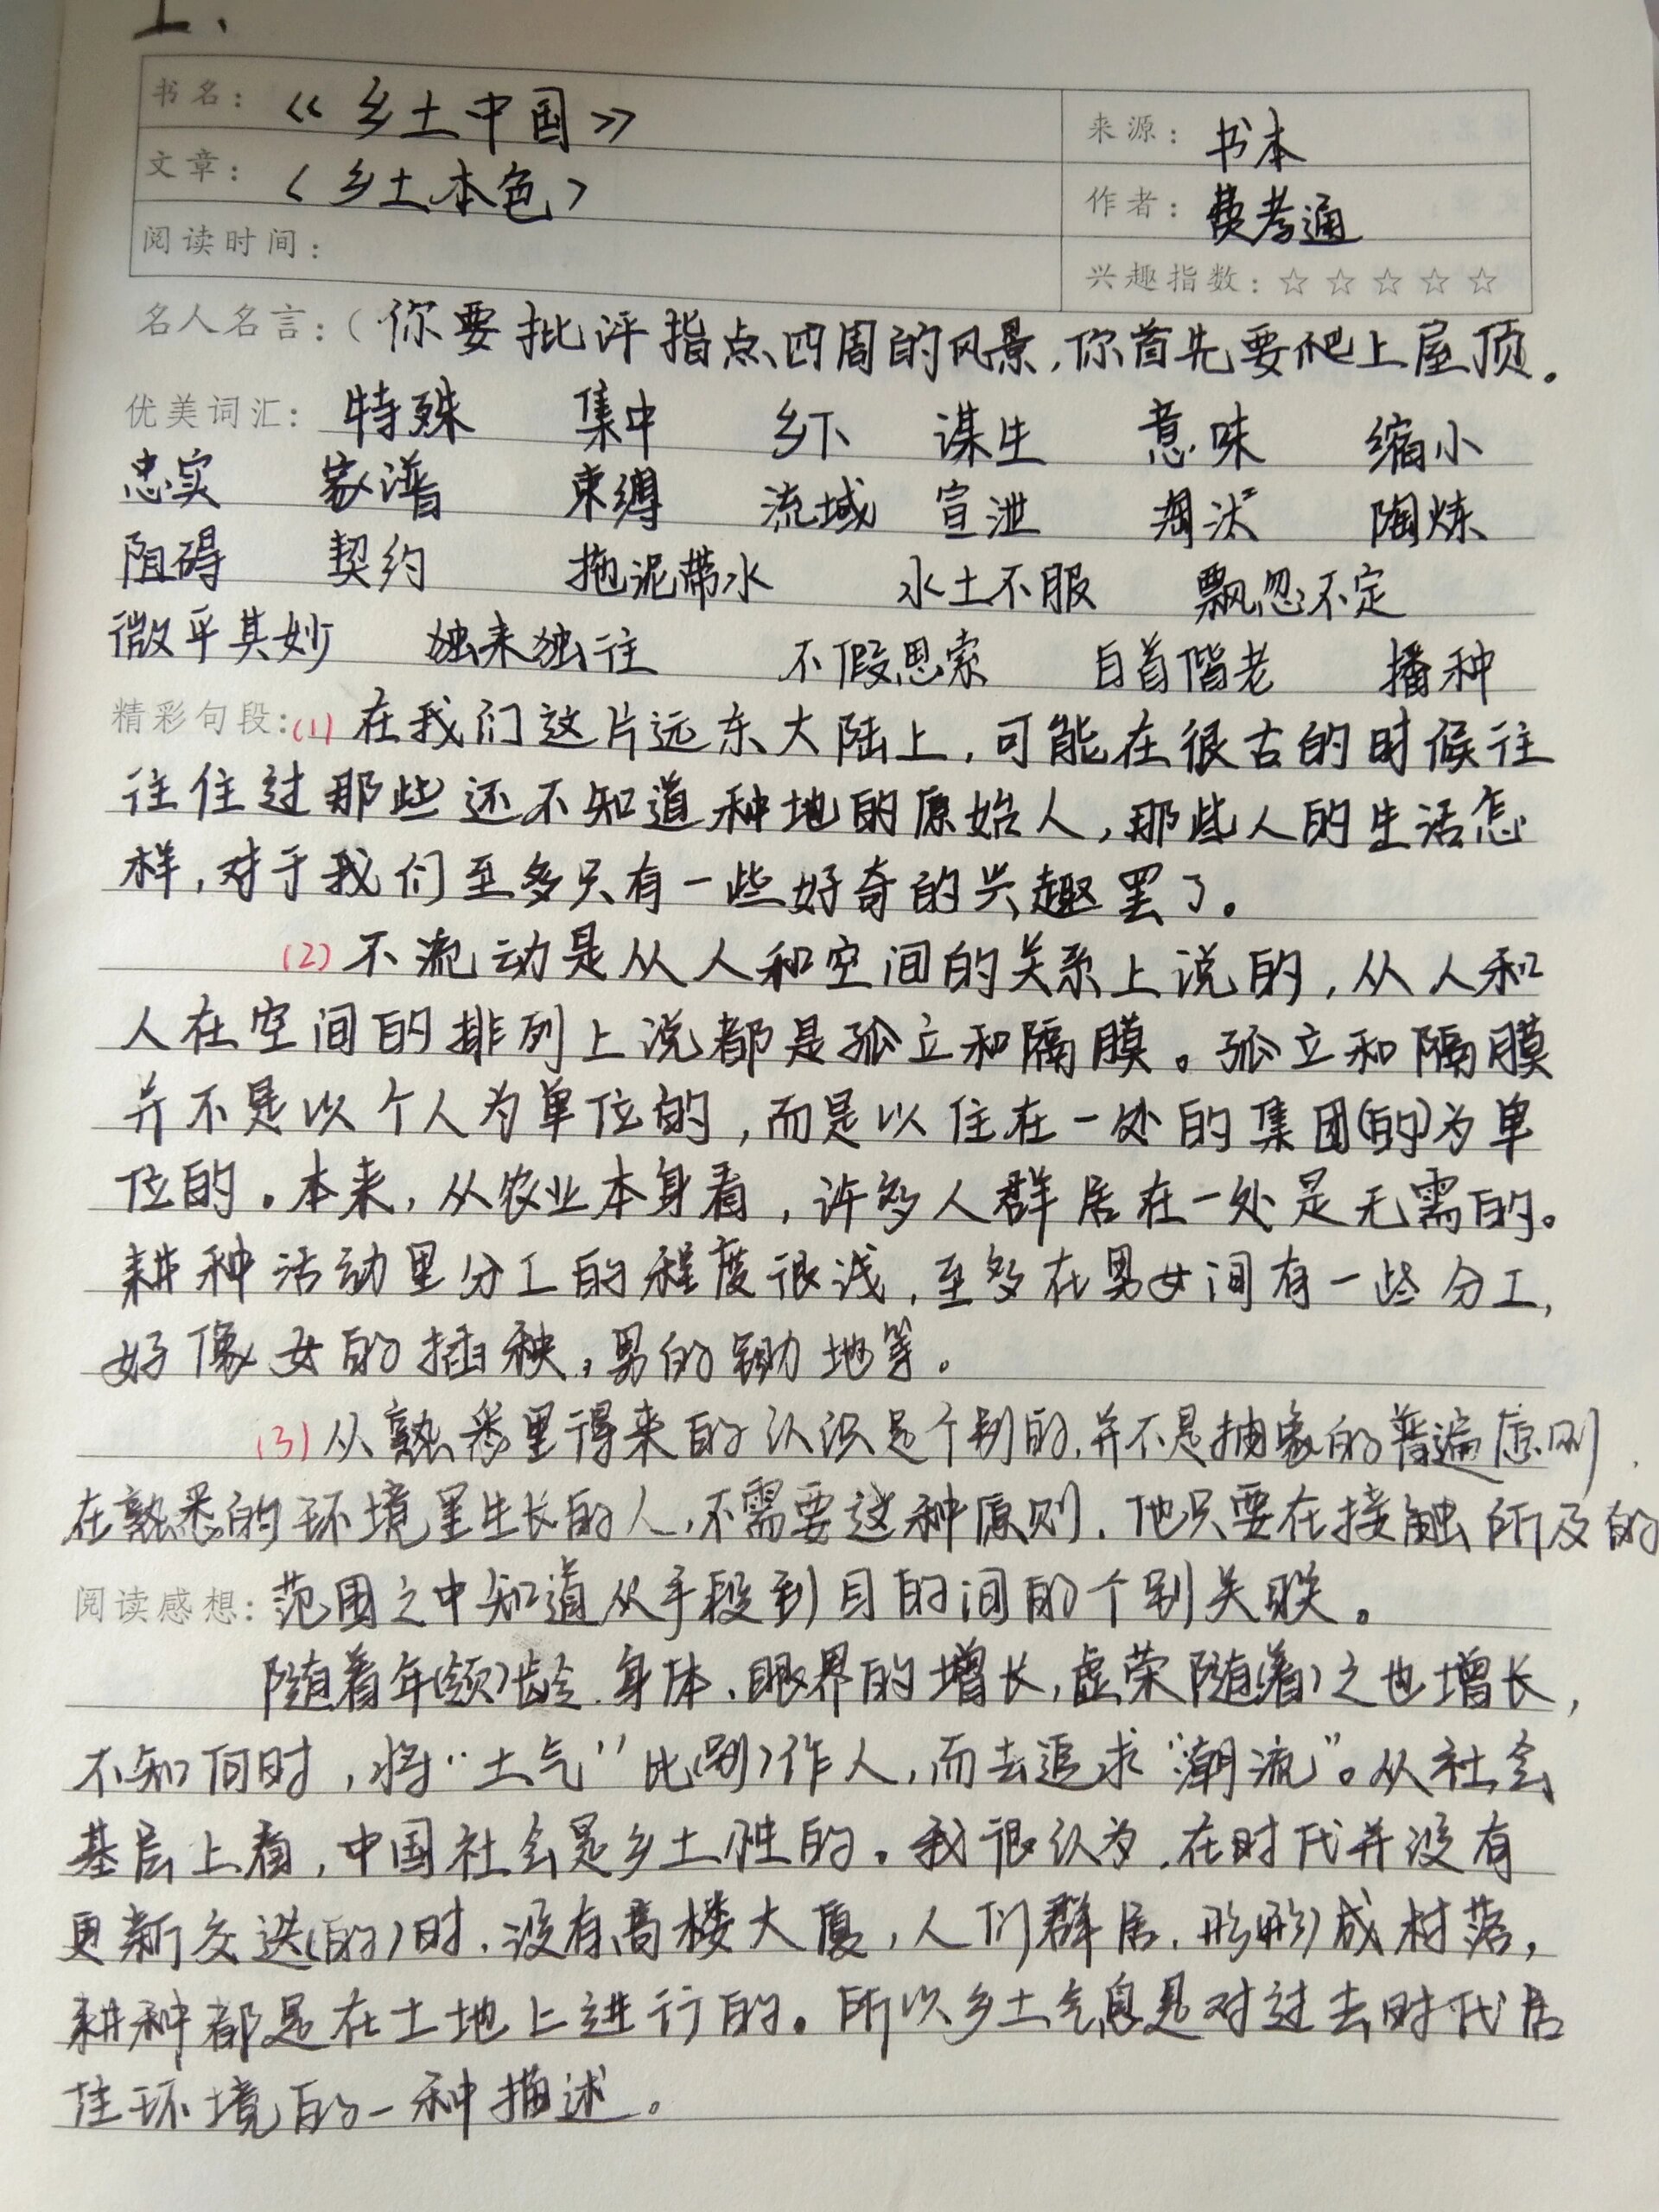 1.
书名：《乡土中国》
来源：书本
文章：〈乡土本色〉
作者：费孝通
阅读时间：
兴趣指数：☆☆☆☆☆
名人名言：（你要批评指点四周的风景，你首先要爬上屋顶。
优美词汇：特殊 集中 乡下 谋生 意味 缩小
忠实 家谱 束缚 流域 宣泄 淘汰 陶炼
阻碍 契约 拖泥带水 水土不服 飘忽不定
微乎其妙 独来独往 不假思索 白首偕老 播种
精彩句段：(1)在我们这片远东大陆上，可能在很古的时候往
往住过那些还不知道种地的原始人，那些人的生活怎
样，对于我们至多只有一些好奇的兴趣罢了。
(2)不流动是从人和空间的关系上说的，从人和
人在空间的排列上说都是孤立和隔膜。孤立和隔膜
并不是以个人为单位的，而是以住在一处的集团(的)为单
位的。本来，从农业本身看，许多人群居在一处是无需的。
耕种活动里分工的程度很浅，至多在男女间有一些分工，
好像女的插秧，男的锄地等。
(3)从熟悉里得来的认识是个别的，并不是抽象的普遍原则.
在熟悉的环境里生长的人，不需要这种原则，他只要在接触所及的
阅读感想：范围之中知道从手段到目的间的个别关联。
随着年(领)龄、身体、眼界的增长，虚荣随(着)之也增长，
不知何时，将“土气”比(别)作人，而去追求“潮流”。从社会
基层上看，中国社会是乡土性的。我很认为，在时代并没有
更新交迭(的)时，没有高楼大厦，人们群居，形(形)成村落，
耕种都是在土地上进行的。所以乡土气息是对过去时代居
住环境的一种描述。